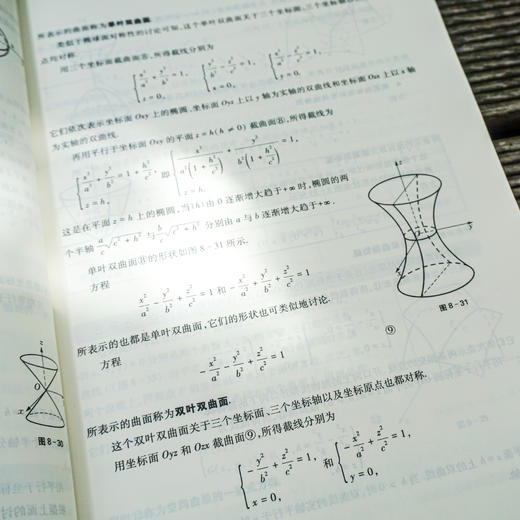 所表示的曲面称为单叶双曲面.
类似于椭球面对称性的讨论可知,这个单叶双曲面关于三个坐标面、三个坐标轴
点均对称.
用三个坐标面截曲面⑧,所得截线分别为
{x²/a² + y²/b² = 1, z = 0,  {y²/b² − z²/c² = 1, x = 0,  {x²/a² − z²/c² = 1, y = 0.
它们依次表示坐标面 Oxy 上的椭圆,坐标面 Oyz 上以 y 轴为实轴的双曲线和坐标面 Ozx 上以 x 轴
为实轴的双曲线.
再用平行于坐标面 Oxy 的平面 z = h(h ≠ 0) 截曲面⑧,所得截线为
{x²/a² + y²/b² = 1 + h²/c², z = h, 即 {x²/(a²(1 + h²/c²)) + y²/(b²(1 + h²/c²)) = 1, z = h.
这是在平面 z = h 上的椭圆,当|h|由 0 逐渐增大趋于 +∞ 时,椭圆的两
个半轴 a/c √(c² + h²) 与 b/c √(c² + h²) 分别由 a 与 b 逐渐增大趋于 +∞.
单叶双曲面⑧的形状如图 8-31 所示.
方程
x²/a² − y²/b² + z²/c² = 1 和 −x²/a² + y²/b² + z²/c² = 1
所表示的也都是单叶双曲面,它们的形状也可类似地讨论.
方程
−x²/a² − y²/b² + z²/c² = 1 ⑨
所表示的曲面称为双叶双曲面.
这个双叶双曲面关于三个坐标面、三个坐标轴以及坐标原点也都对称.
用坐标面 Oyz 和 Ozx 截曲面⑨,所得截线分别为
{−y²/b² + z²/c² = 1, x = 0, 和 {−x²/a² + z²/c² = 1, y = 0,
z
y
图 8-31
z
O
x
图 8-30